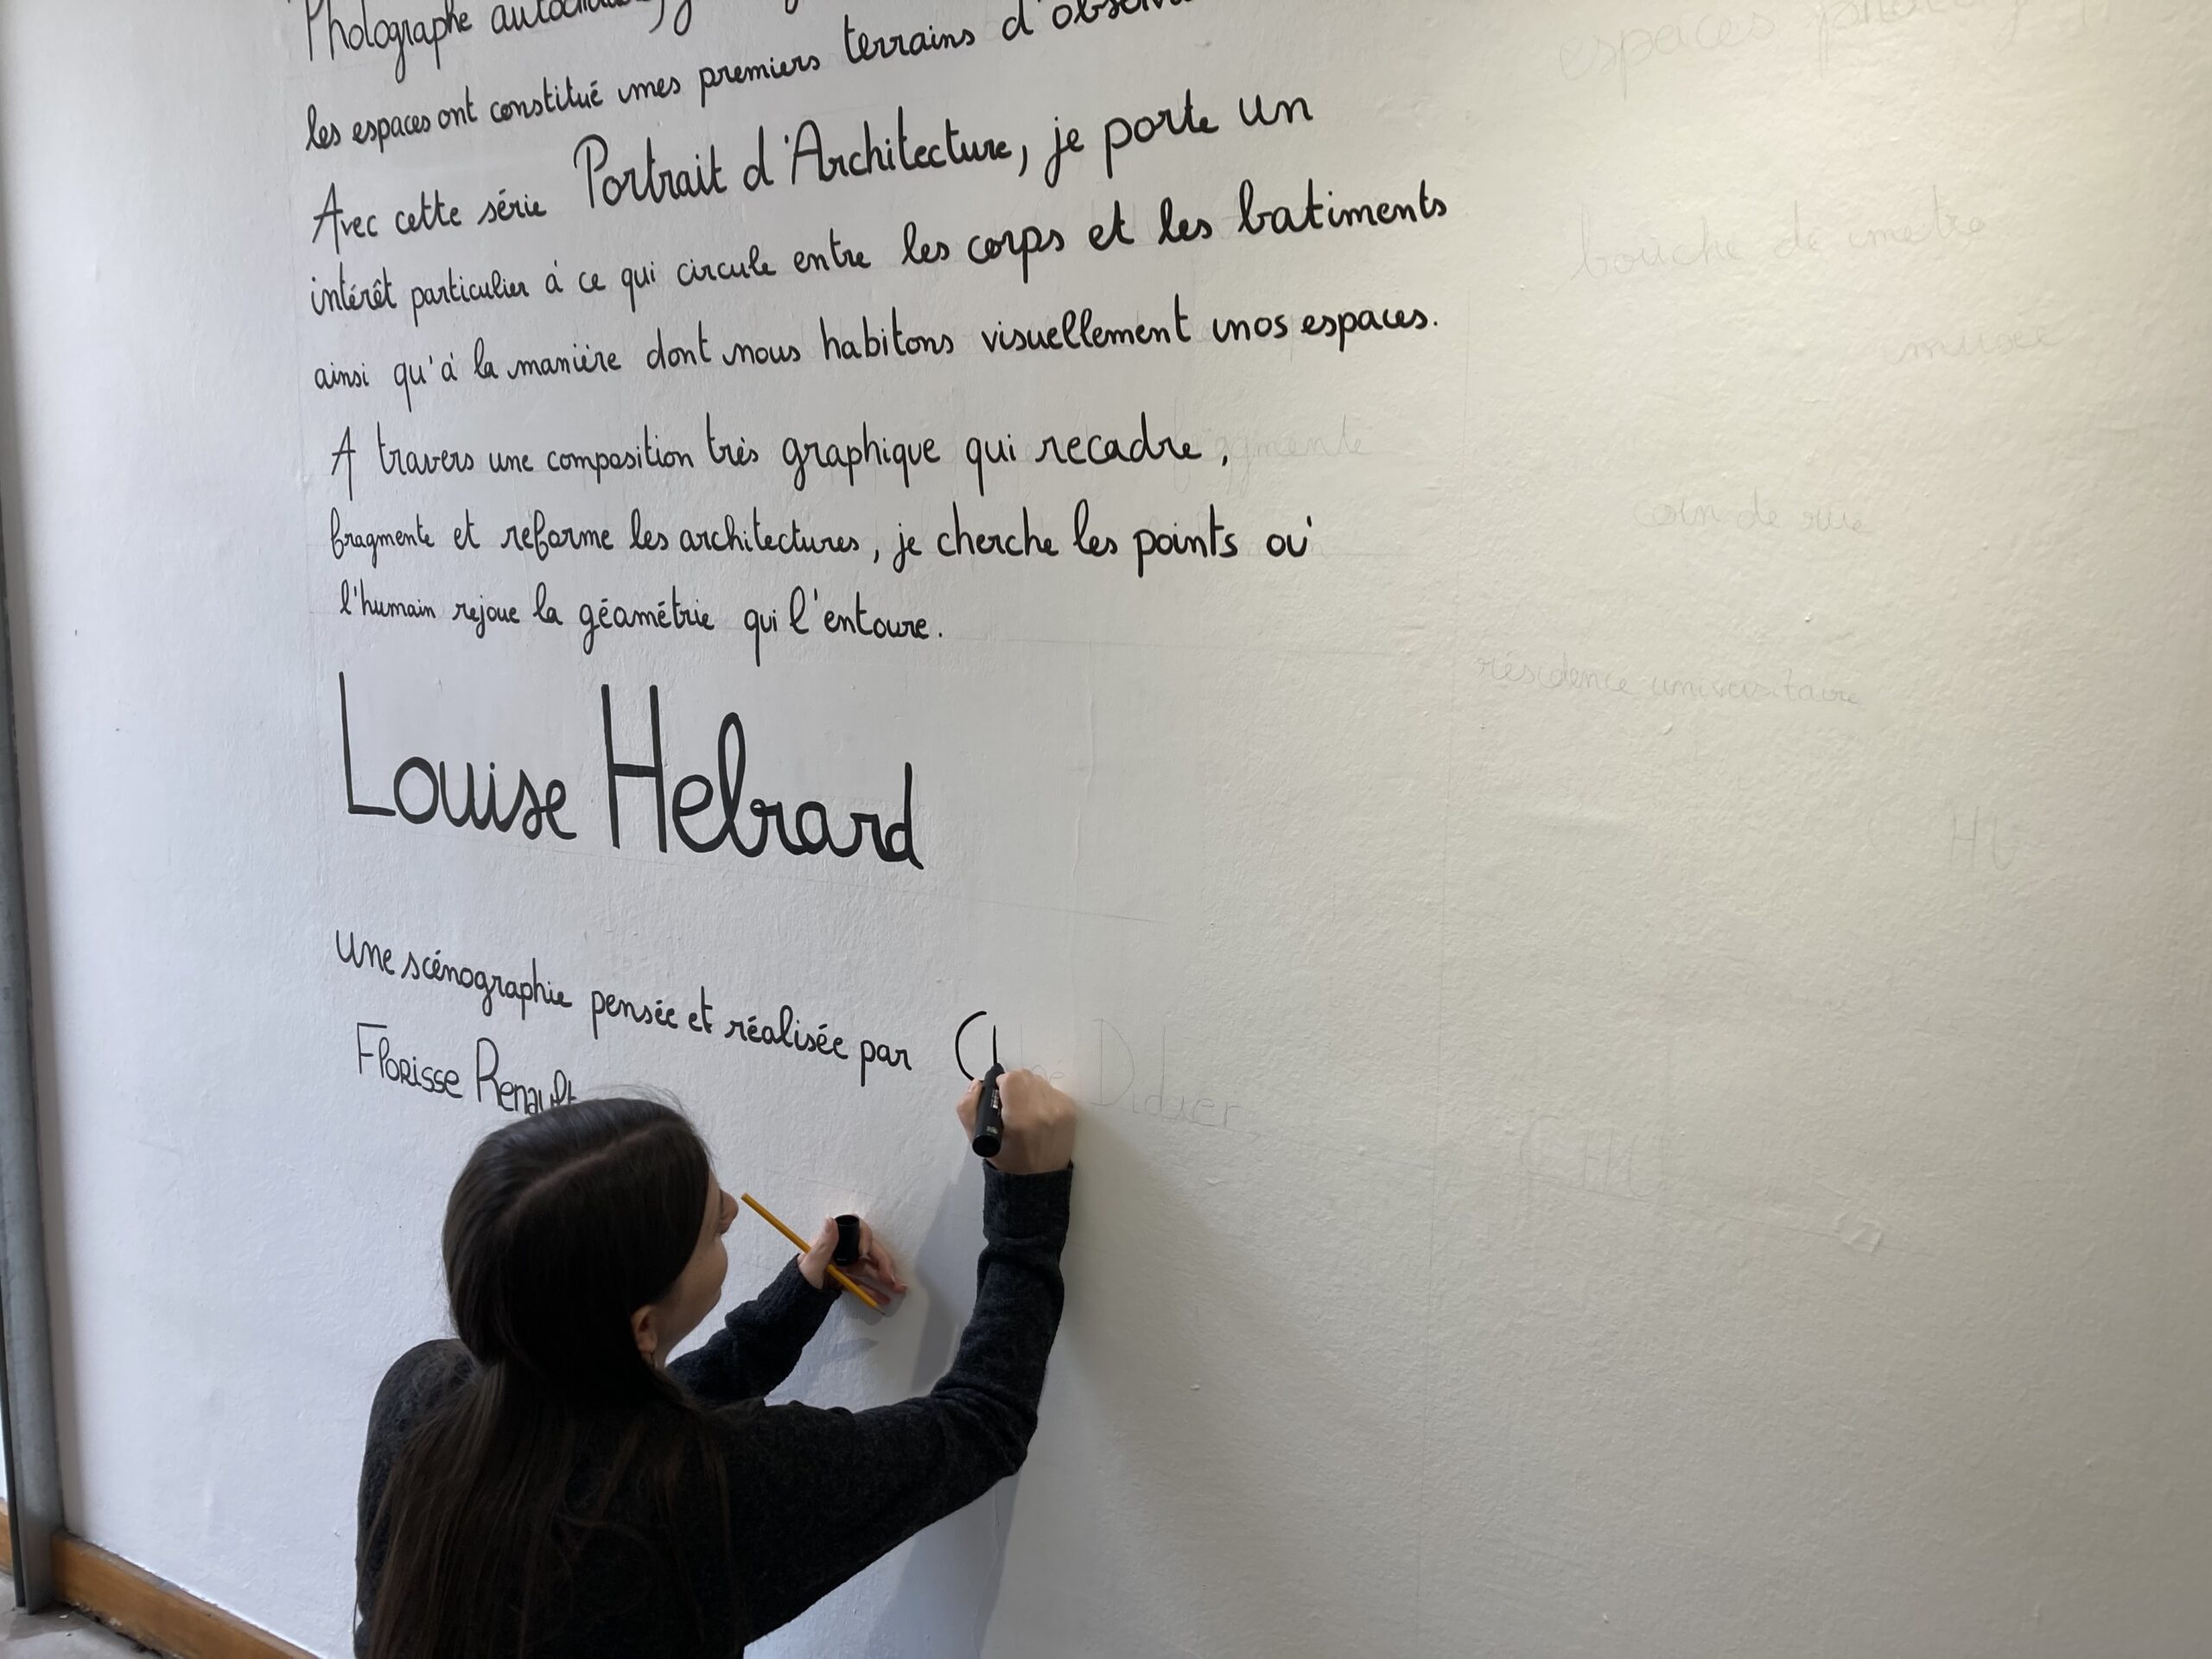 Photographe
les espaces ont constitué mes premiers terrains
Avec cette série Portrait d'Architecture, je porte un
intérêt particulier à ce qui circule entre les corps et les batiments
ainsi qu'à la manière dont nous habitons visuellement nos espaces.
A travers une composition très graphique qui recadre,
fragmente
fragmente et reforme les architectures, je cherche les points où
l'humain rejoue la géamétrie qui l'entoure.
Louise Hebrard
Une scénographie pensée et réalisée par
Didier
Florisse Renault
espaces
bouche de metro
musée
coin de rue
résidence universitaire